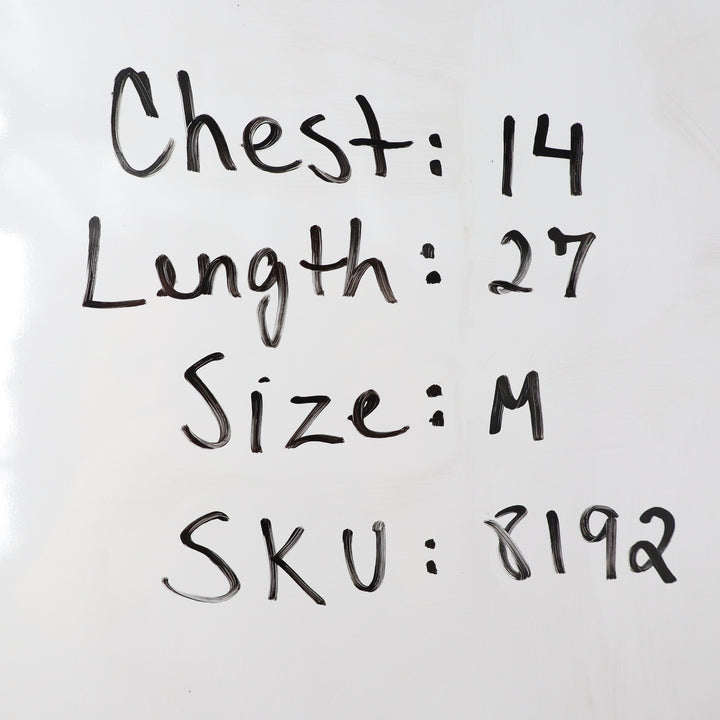 Chest: 14
Length: 27
Size: M
SKU: 8192